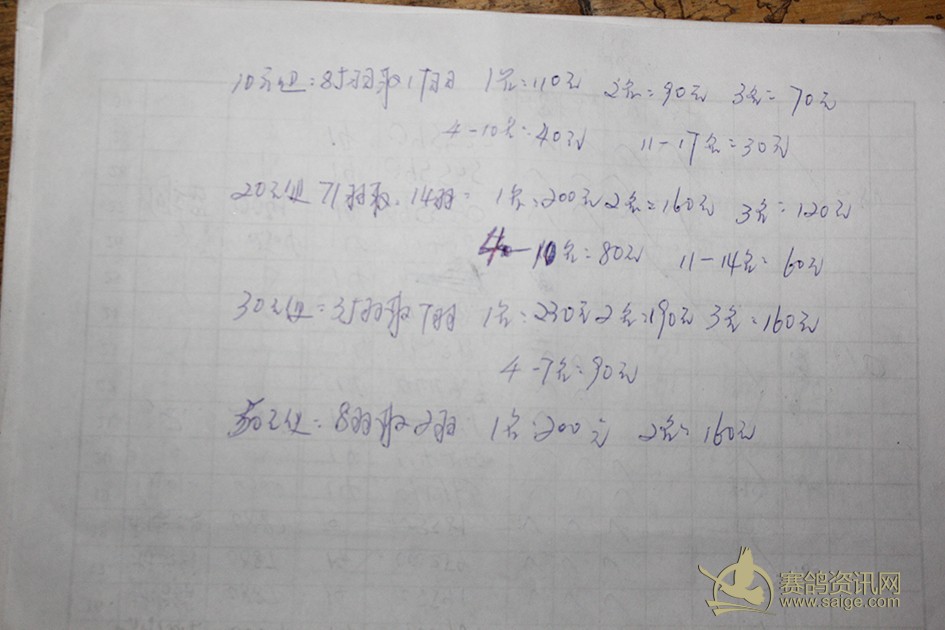 10元组:85羽取17羽 1名:110元 2名:90元 3名:70元
4-10名:40元 11-17名:30元
20元组 71羽取14羽: 1名:200元 2名:160元 3名:120元
4-10名:80元 11-14名:60元
30元组:35羽取7羽 1名:230元 2名:190元 3名:160元
4-7名:90元
元组:8羽取2羽 1名:200元 2名:160元
赛鸽资讯网
www.saige.com